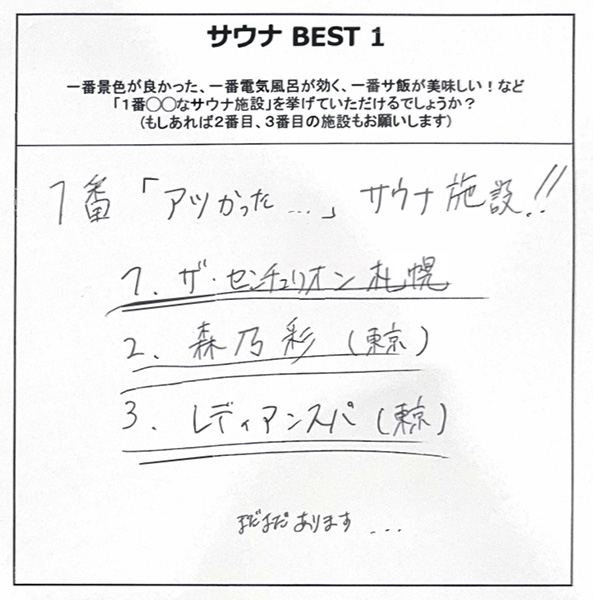 サウナ BEST 1
一番景色が良かった、一番電気風呂が効く、一番サ飯が美味しい！など
「１番◯◯なサウナ施設」を挙げていただけるでしょうか？
(もしあれば２番目、３番目の施設もお願いします)
1番「アツかった…」サウナ施設!!
1. ザ・センチュリオン札幌
2. 森乃彩(東京)
3. レディアンスパ(東京)
まだまだあります...